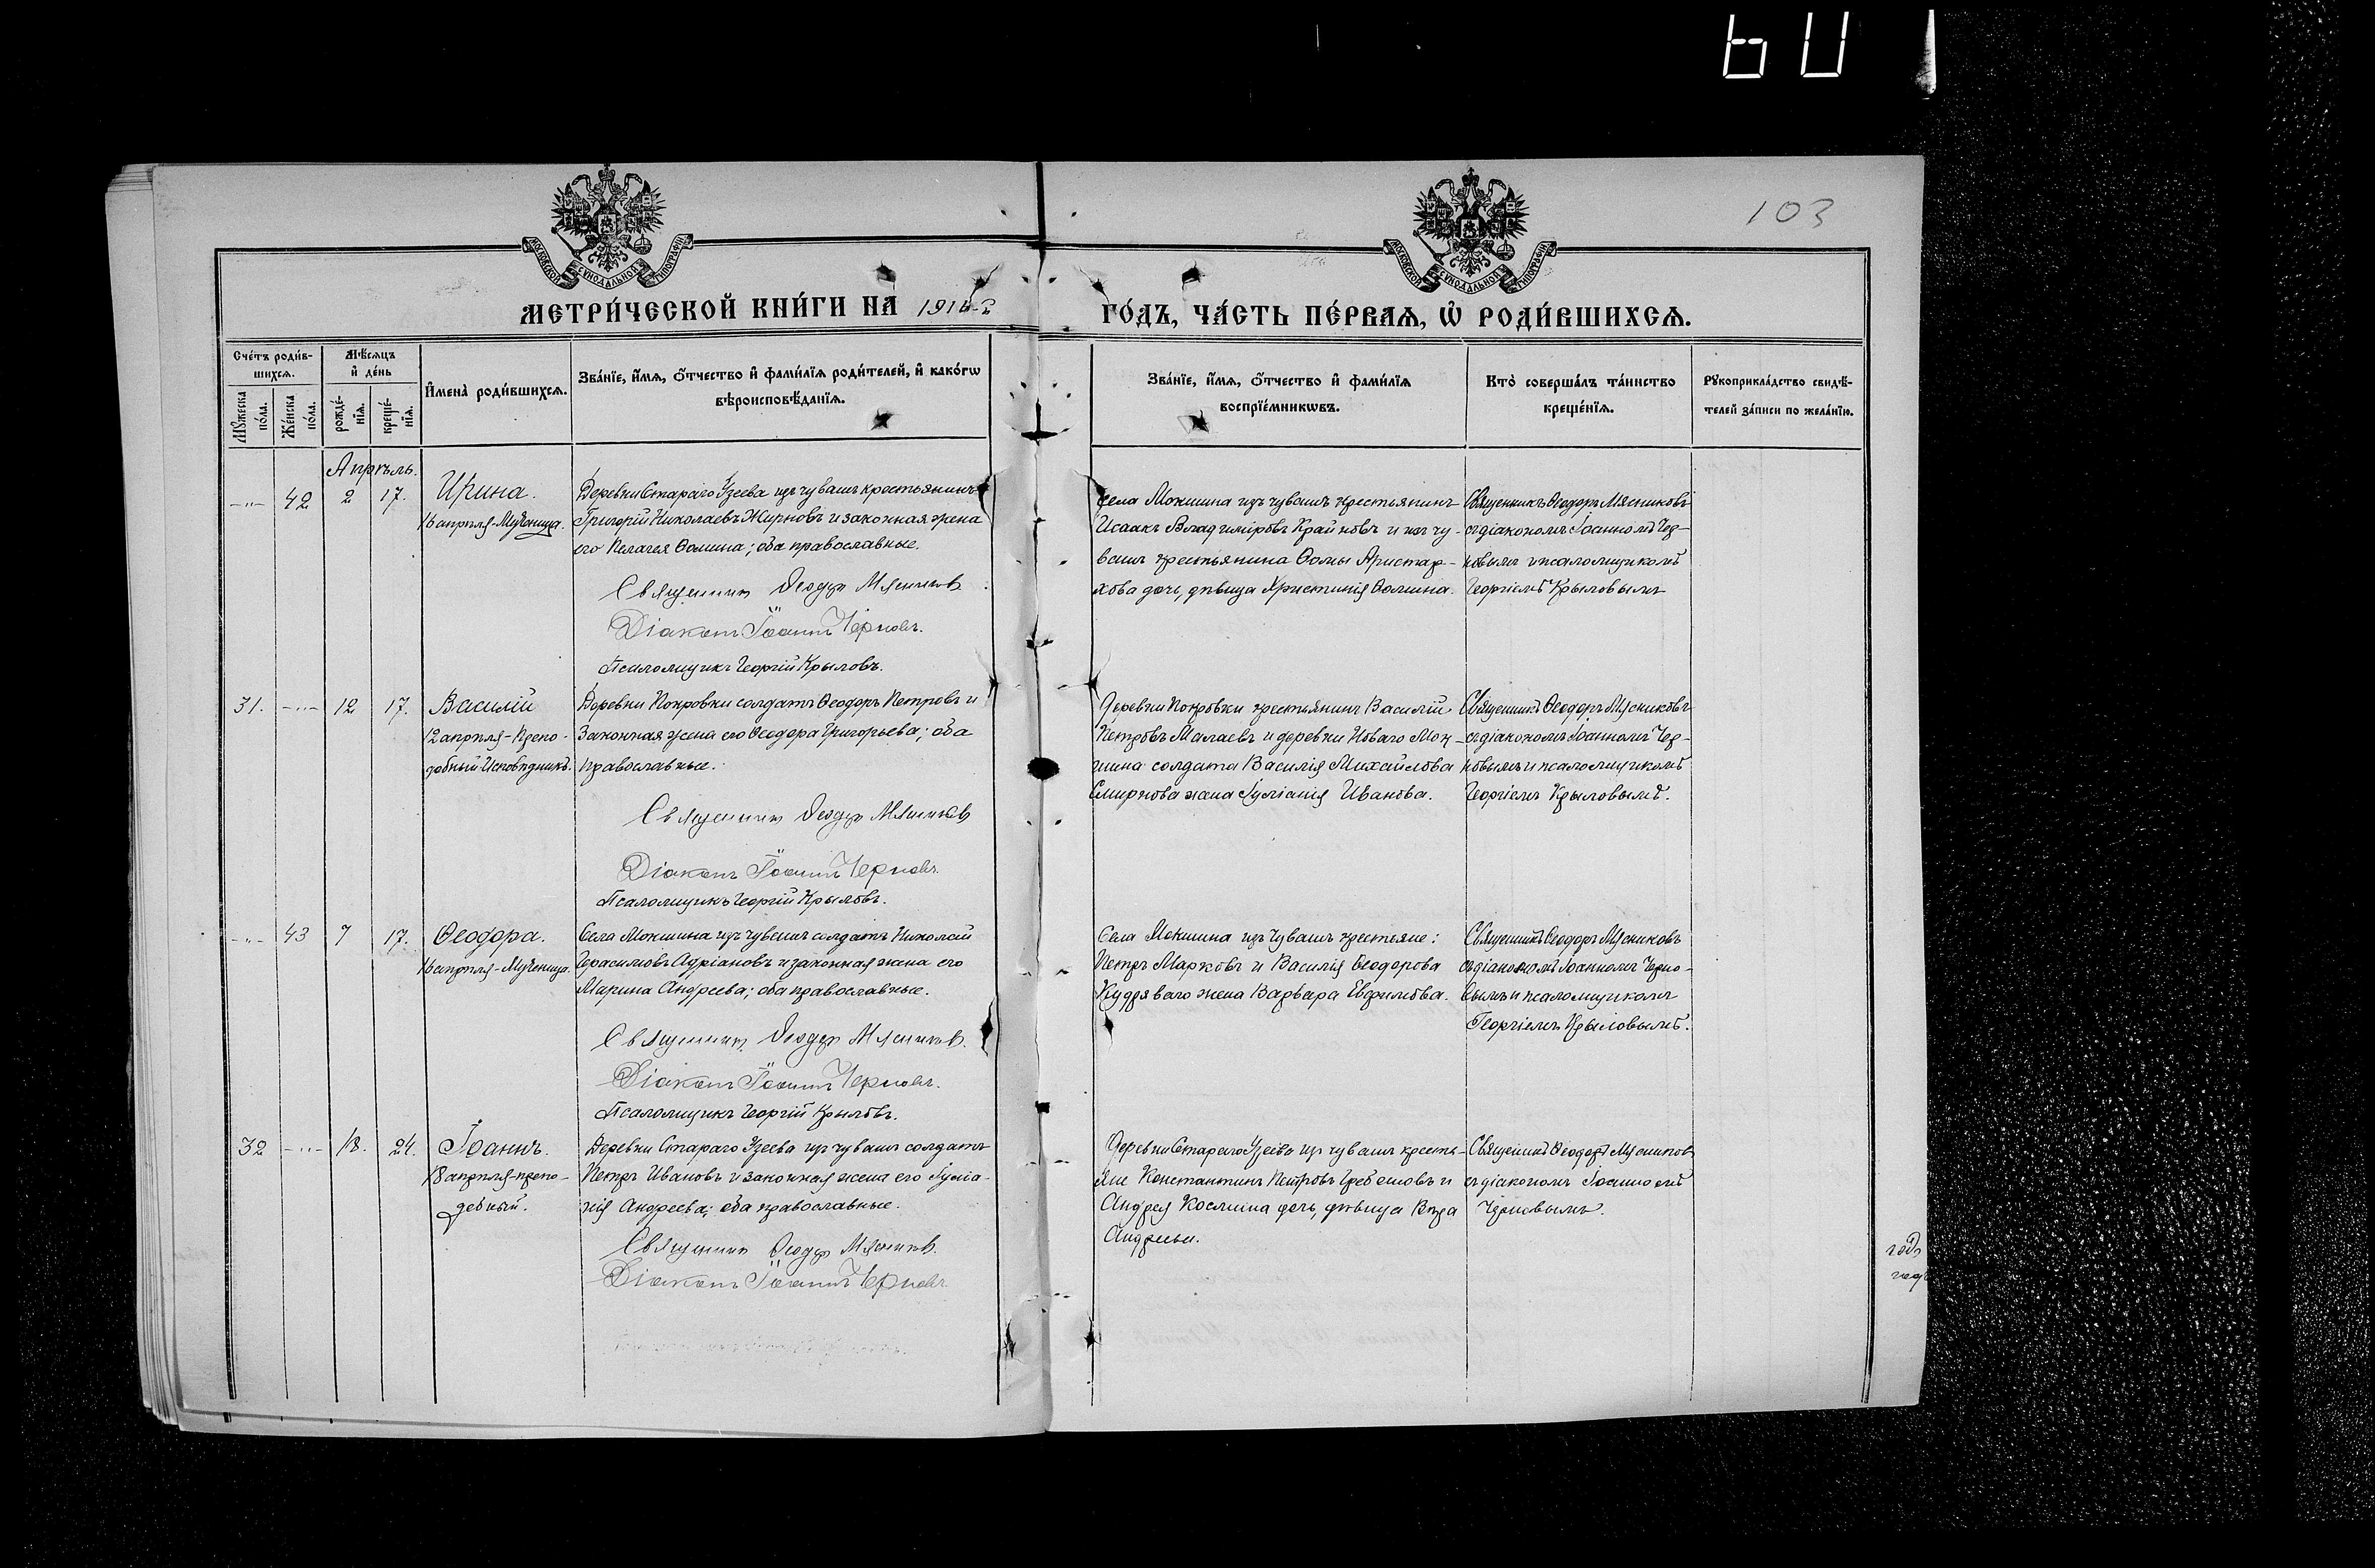 103
МОСКОВСКОЙ СѴНОДАЛЬНОЙ ТИПОГРАФІИ
МОСКОВСКОЙ СѴНОДАЛЬНОЙ ТИПОГРАФІИ
МЕТРИ́ЧЕСКОЙ КНИ́ГИ НА
ГО́ДЪ, ЧА́СТЬ ПЕ́РВАѦ, Ѡ҆ РОДИ́ВШИХСѦ.
Сче́тъ роди́в-
шихсѧ.
Мѣ́сѧцъ
и҆ де́нь
Мꙋ́жеска
по́ла.
Же́нска
по́ла.
рожде́-
нїѧ.
креще́-
нїѧ.
И҆мена̀ роди́вшихсѧ.
Зва́нїе, и҆́мѧ, ѻ҆́тчество и҆ фами́лїѧ роди́телей, и҆ како́гѡ
вѣроисповѣ́данїѧ.
Зва́нїе, и҆́мѧ, ѻ҆́тчество и҆ фами́лїѧ
воспрїе́мникѡвъ.
Кто̀ соверша́лъ та́инство
креще́нїѧ.
Рꙋкоприкла́дство свидѣ́-
телей за́писи по жела́нїю.
Апрѣль.
-"- 42 2 17. Ирина.
16 апрѣля-Мученица.
Деревни Стараго Узеева изъ чувашъ крестьянинъ
Григорій Николаевъ Жирновъ и законная жена
его Пелагея Ѳомина; оба православные.
Священникъ Ѳеодоръ Мясниковъ
Діаконъ Іоаннъ Черновъ.
Псаломщикъ Георгій Крыловъ.
Села Мокшина изъ чувашъ крестьянинъ
Исаакъ Владиміровъ Крайновъ и изъ чу-
вашъ крестьянина Ѳомы Аристар-
хова дочь, дѣвица Христинія Ѳомина.
Священникъ Ѳеодоръ Мясниковъ
съ діакономъ Іоанномъ Чер-
новымъ и псаломщикомъ
Георгіемъ Крыловымъ
31. -"- 12 17. Василій
12 апрѣля-Препо-
добный Исповѣдникъ.
Деревни Покровки солдатъ Ѳеодоръ Петровъ и
Законная жена его Ѳеодора Григорьева; оба
православные.
Священникъ Ѳеодоръ Мясниковъ
Діаконъ Іоаннъ Черновъ
Псаломщикъ Георгій Крыловъ.
Деревни Покровки крестьянинъ Василій
Петровъ Малаевъ и деревни Новаго Мок-
шина солдата Василія Михайлова
Смирнова жена Іуліанія Иванова.
Священникъ Ѳеодоръ Мясниковъ
съ діакономъ Іоанномъ Чер-
новымъ и псаломщикомъ
Георгіемъ Крыловымъ.
-"- 43 7 17. Ѳеодора.
16 апрѣля-Мученица.
Села Мокшина изъ чувашъ солдатъ Николай
Герасимовъ Адріановъ и законная жена его
Марина Андреева; оба православные.
Священникъ Ѳеодоръ Мясниковъ.
Діаконъ Іоаннъ Черновъ.
Псаломщикъ Георгій Крыловъ.
Села Мокшина изъ чувашъ крестьяне:
Петръ Марковъ и Василія Ѳеодорова
Кудряваго жена Варвара Евфимова.
Священникъ Ѳеодоръ Мясниковъ
съ діакономъ Іоанномъ Черно-
вымъ и псаломщикомъ
Георгіемъ Крыловымъ.
32 -"- 18. 24. Іоаннъ.
18 апрѣля-препо-
добный.
Деревни Стараго Узеева изъ чувашъ солдатъ
Петръ Ивановъ и законная жена его Іуліа-
нія Андреева; оба православные.
Священникъ Ѳеодоръ Мясниковъ.
Діаконъ Іоаннъ Черновъ
Деревни Стараго Узеева изъ чувашъ кресть-
яне Константинъ Петровъ Гребешовъ и
Андрея Косьмина дочь, дѣвица Вѣра
Андреева.
Священникъ Ѳеодоръ Мясниковъ
съ діакономъ Іоанномъ
Черновымъ.